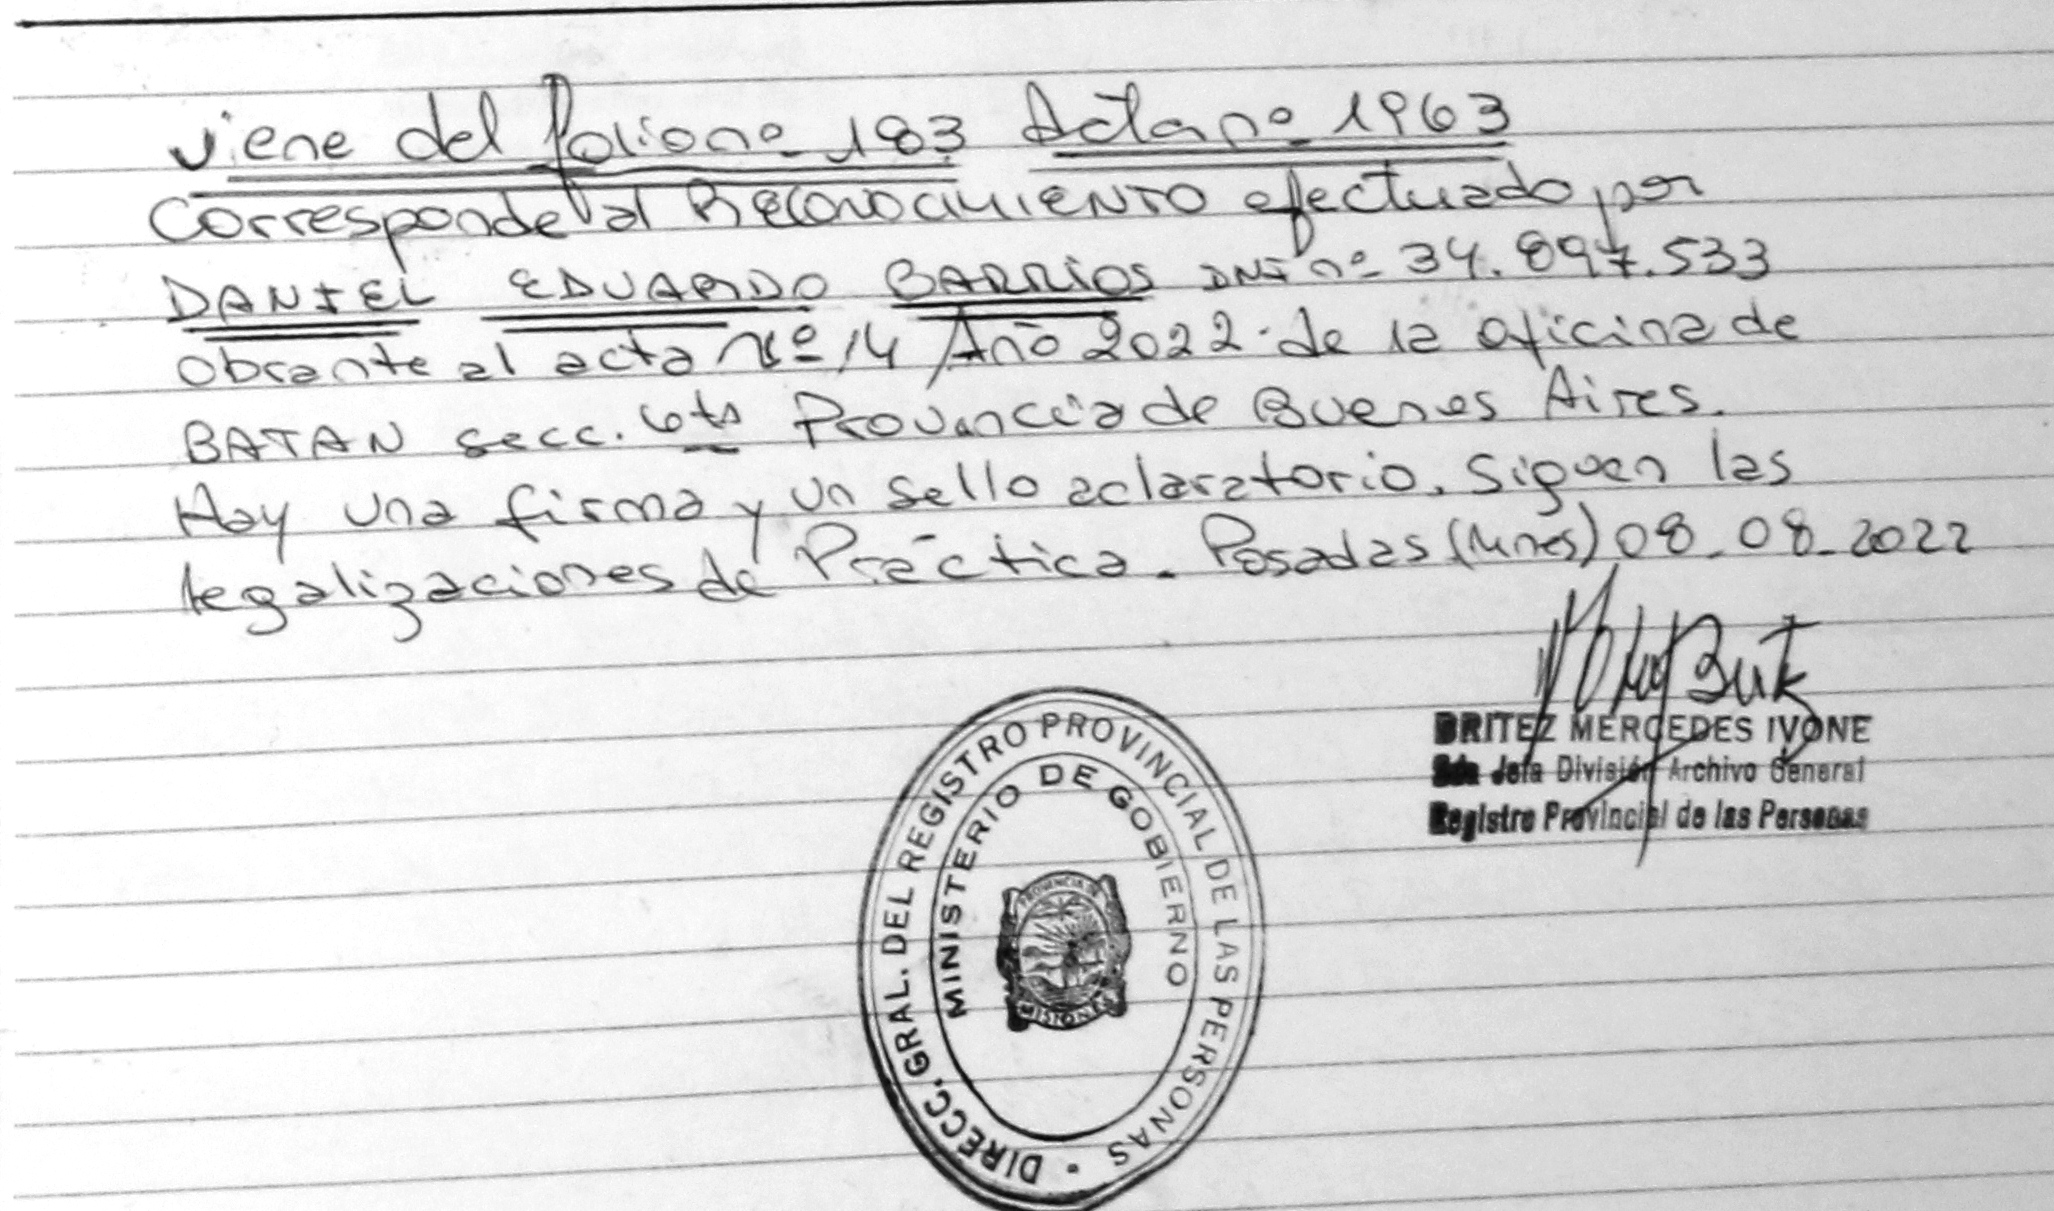 viene del folio nº 183 Acta nº 1963
Corresponde al Reconocimiento efectuado por
DANIEL EDUARDO BARRIOS DNI nº 34.897.533
obrante al acta nº 14 Año 2022. de la oficina de
BATAN secc. 6ta Provincia de Buenos Aires.
Hay una firma y un sello aclaratorio. Siguen las
legalizaciones de Práctica. Posadas (Mnes) 08-08-2022
BRITEZ MERCEDES IVONE
Sda Jefa División Archivo General
Registro Provincial de las Personas
DIRECC. GRAL. DEL REGISTRO PROVINCIAL DE LAS PERSONAS
MINISTERIO DE GOBIERNO
PROVINCIA DE
MISIONES